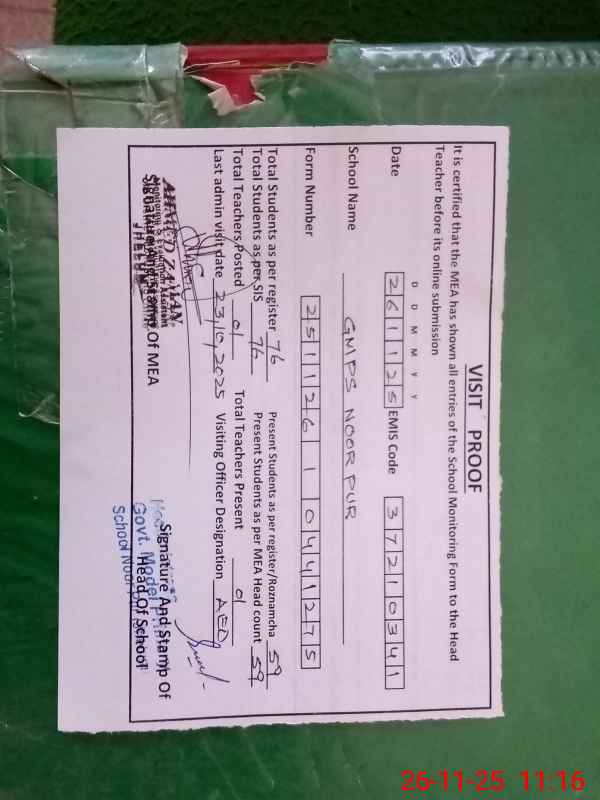 VISIT PROOF
It is certified that the MEA has shown all entries of the School Monitoring Form to the Head
Teacher before its online submission
D D M M Y Y
Date 2 6 1 1 2 5 EMIS Code 3 7 2 1 0 3 4 1
School Name GMPS NOOR PUR
Form Number 2 5 1 1 2 6 1 0 4 4 1 2 7 5
Total Students as per register 76 Present Students as per register/Roznamcha 59
Total Students as per SIS 76 Present Students as per MEA Head count 59
Total Teachers Posted 01 Total Teachers Present 01
Last admin visit date 23/10/2025 Visiting Officer Designation AEO
AHMED
Monitoring & Evaluation Assistant
Signature And Stamp Of MEA
JHELUM
Signature And Stamp Of
Head Of School
Govt. Model
School Noor
26-11-25 11:16